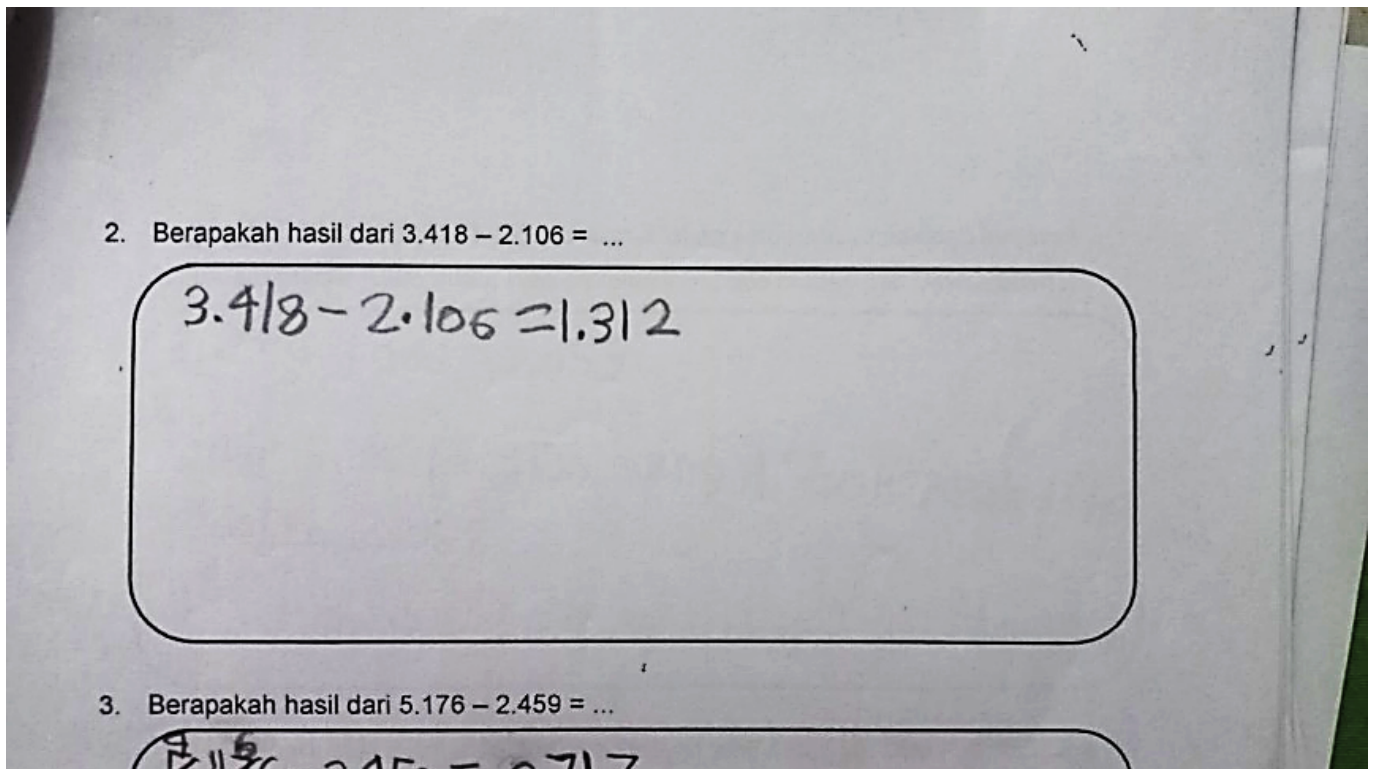 2. Berapakah hasil dari 3.418 – 2.106 = ...
3.418 - 2.106 = 1.312
3. Berapakah hasil dari 5.176 – 2.459 = ...